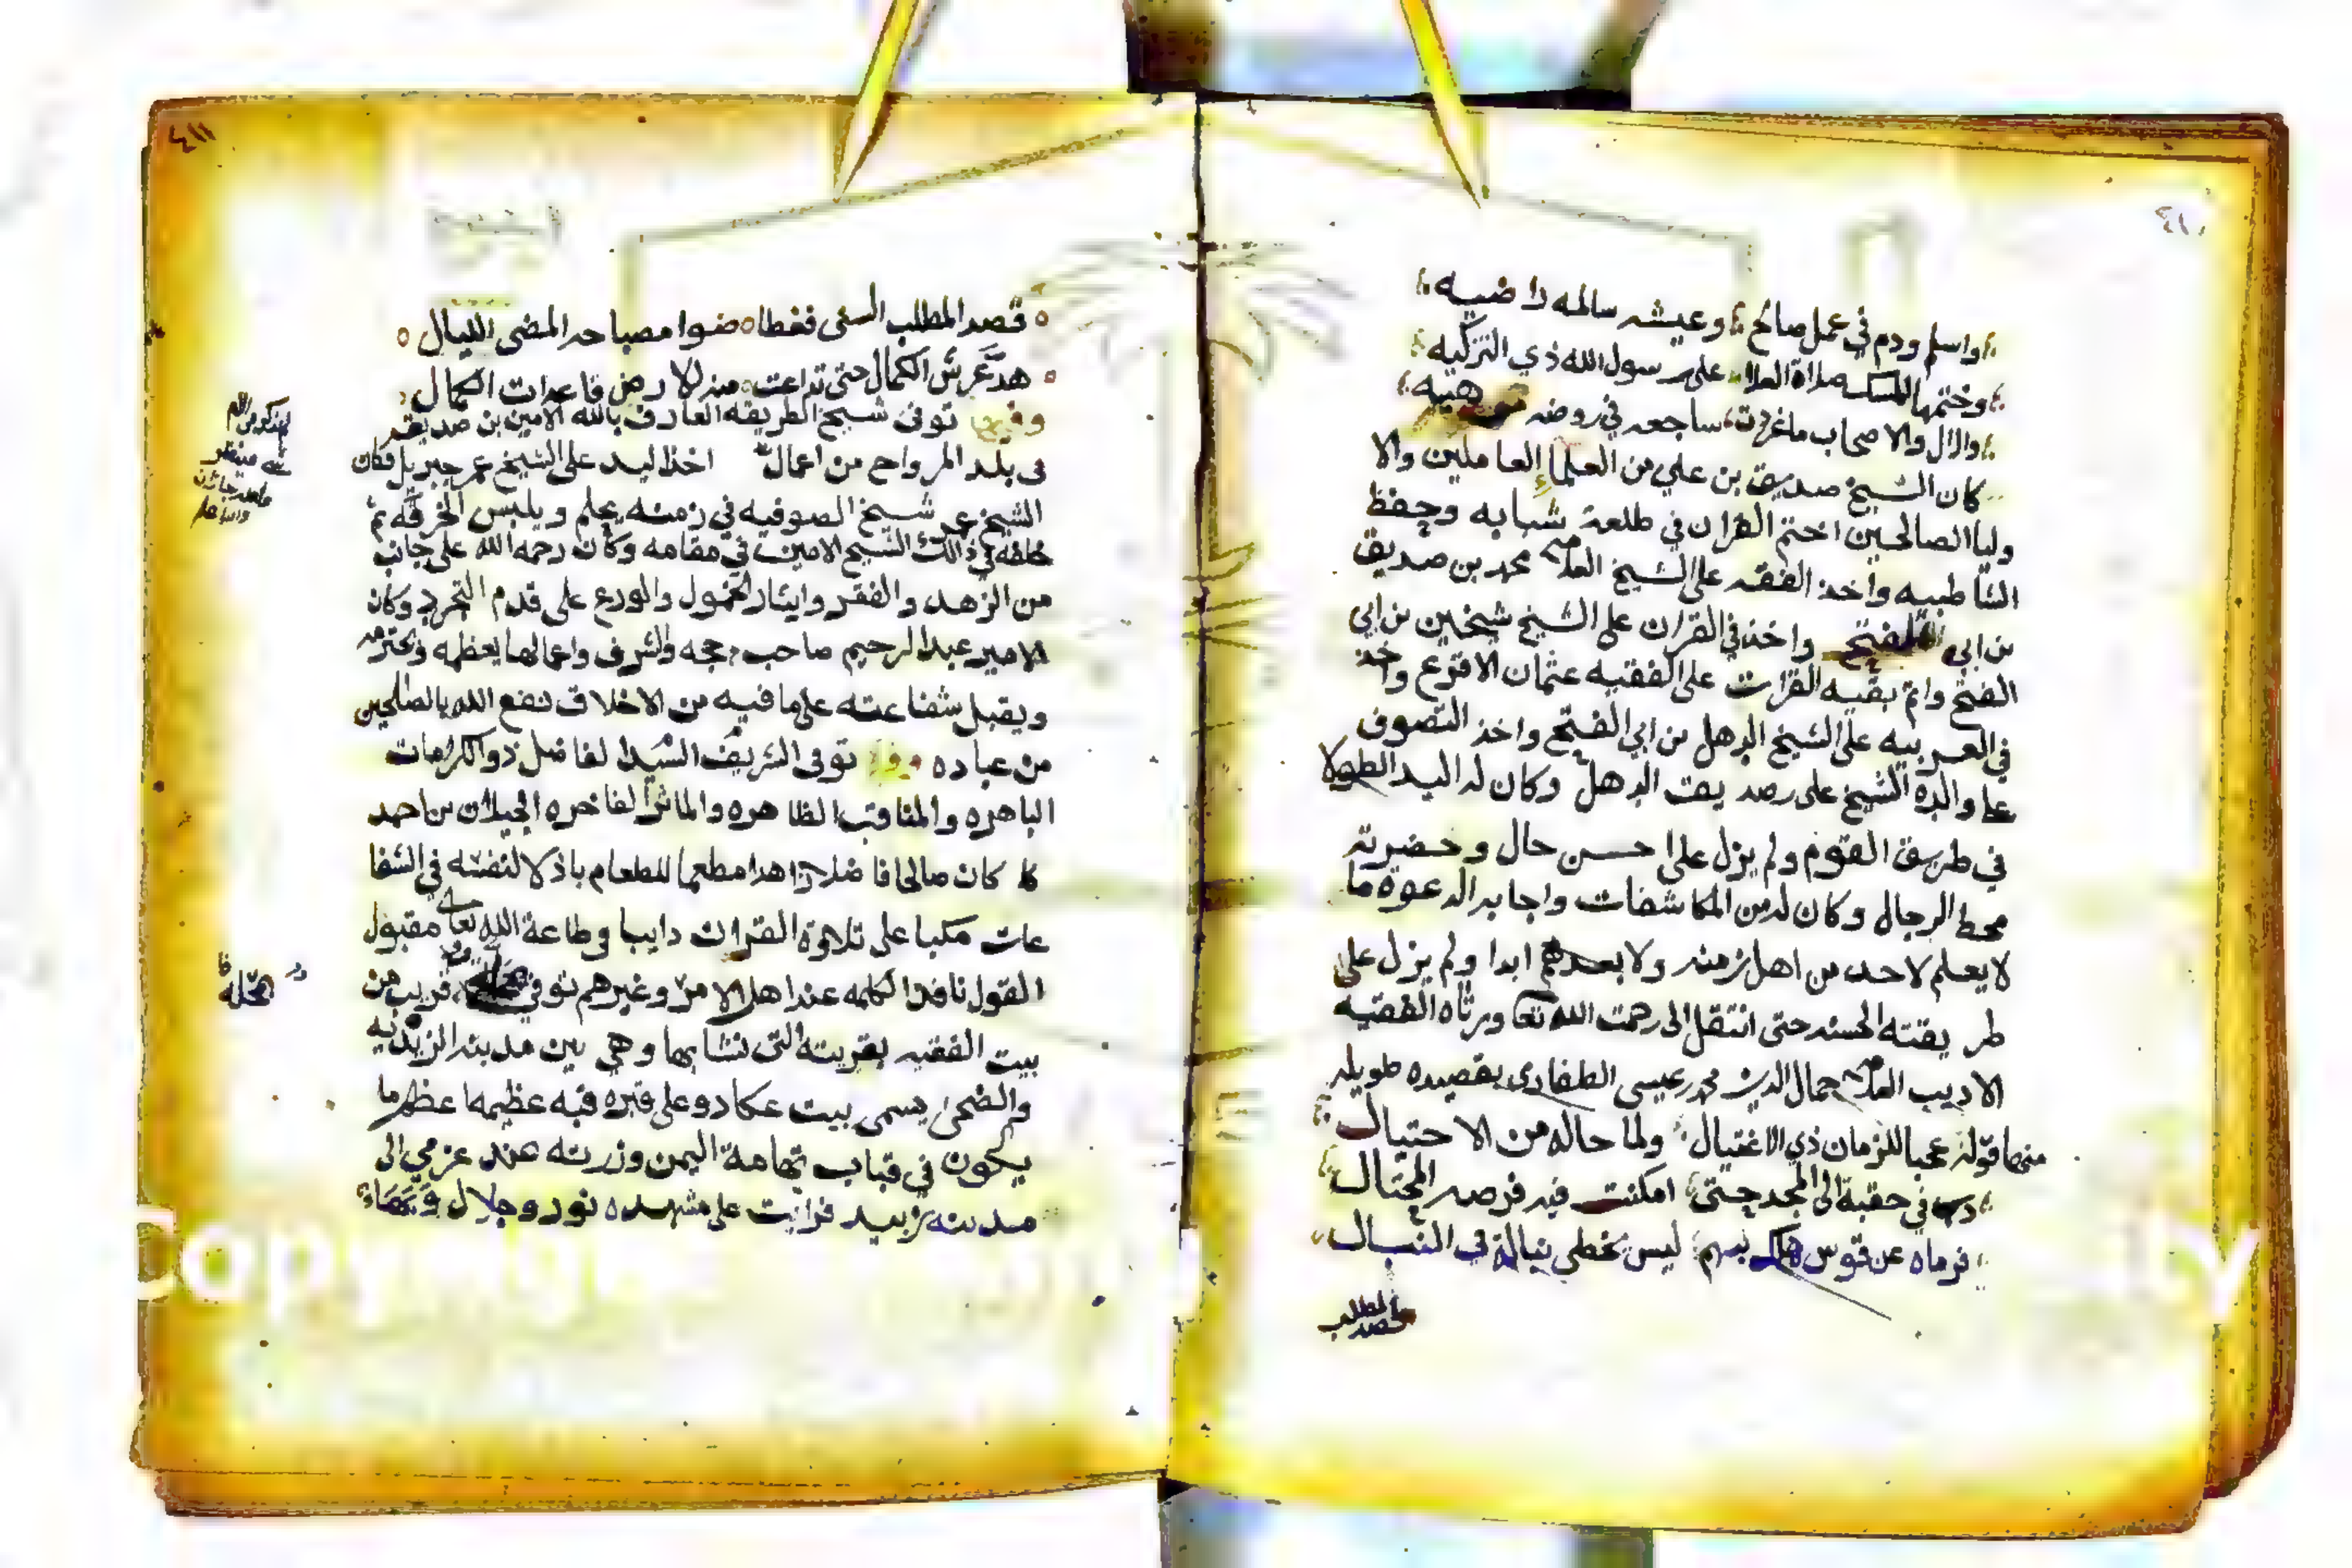 ٤١٠
واسلم ودم في عمل صالح وعيشه سالمه راضيه
وختمها المسك صلاة العلا على رسول الله ذي التزكيه
والال والاصحاب ما غردت ساجعه في روضه
كان الشيخ صديق بن علي من العلماء العاملين والا
وليا الصالحين اختم القران في طلعة شبابه وحفظ
الشاطبيه واخذ الفقه على الشيخ العلامه محمد بن صديق
بن ابي الفتح واخذ في القران على الشيخ شيخين بن ابي
الفتح واتم بقيه القرات على الفقيه عثمان الاقرع واخذ
في العربيه على الشيخ الدهل بن ابي الفتح واخذ التصوف
عا والده الشيخ على صديق الدهل وكان له اليد الطولا
في طريق القوم ولم يزل على احسن حال وحضرته
محط الرجال وكان له من المكاشفات واجابه الدعوه ما
لا يعلم لاحد من اهل زمنه ولا بعدهم ابدا ولم يزل على
طريقته الحسنه حتى انتقل الى رحمت الله تعا ورثاه الفقيه
الاديب العلامه جمال الدين محمد عيسى الظفاري بقصيده طويله
منها قوله عجبا للزمان ذي الاغتيال ولما حاله من الاحتيال
في حقبة الى المجد حتى امكنت فيه فرصه المحتال
فرماه عن قوس بسهم ليس يخطى نباله في النبال
قصد المطلب
٤١١
قصد المطلب السنى فغطا ضوا مصباحه المضى الليال
هد عرش الكمال حتى تداعت منه الارض قاعدات الكمال
وفيها توفى شيخ الطريقه العارف بالله الامين بن صديق
فى بلد المرواح من اعمال اخذ اليد على الشيخ عمر جبريل فكان
الشيخ عمر شيخ الصوفيه في زمنه يعلم ويلبس الخرقه ثم
خلفه في ذالك الشيخ الامين في مقامه وكان رحمه الله على جانب
من الزهد والفقر وايثار الخمول والورع على قدم التجرد وكان
الامير عبد الرحيم صاحب حجه والشرف واعمالها يعظمه ويحترمه
ويقبل شفاعته على ما فيه من الاخلاق نفع الله بالصالحين
من عباده وفيها توفى الشريف السيد الفاضل ذو الكرامات
الباهره والمناقب الظاهره والماثر الفاخره الجيلان بن احمد
كان صالحا فاضلا زاهدا مطعما للطعام باذلا لنفسه في الشفا
عات مكبا على تلاوة القران دايبا في طاعة الله تعالى مقبول
القول نافذ الكلمه عند اهل الامر وغيرهم توفي قريب من
بيت الفقيه بقريته التى نشا بها وهي بين مدينه الزيديه
والضحى يسمى بيت عكاد وعلى قبره قبه عظيمه اعظم ما
يكون في قباب تهامة اليمن وزرته عند عزمي الى
مدينه زبيد فرايت على مشهده نور وجلال وبهاء
محله